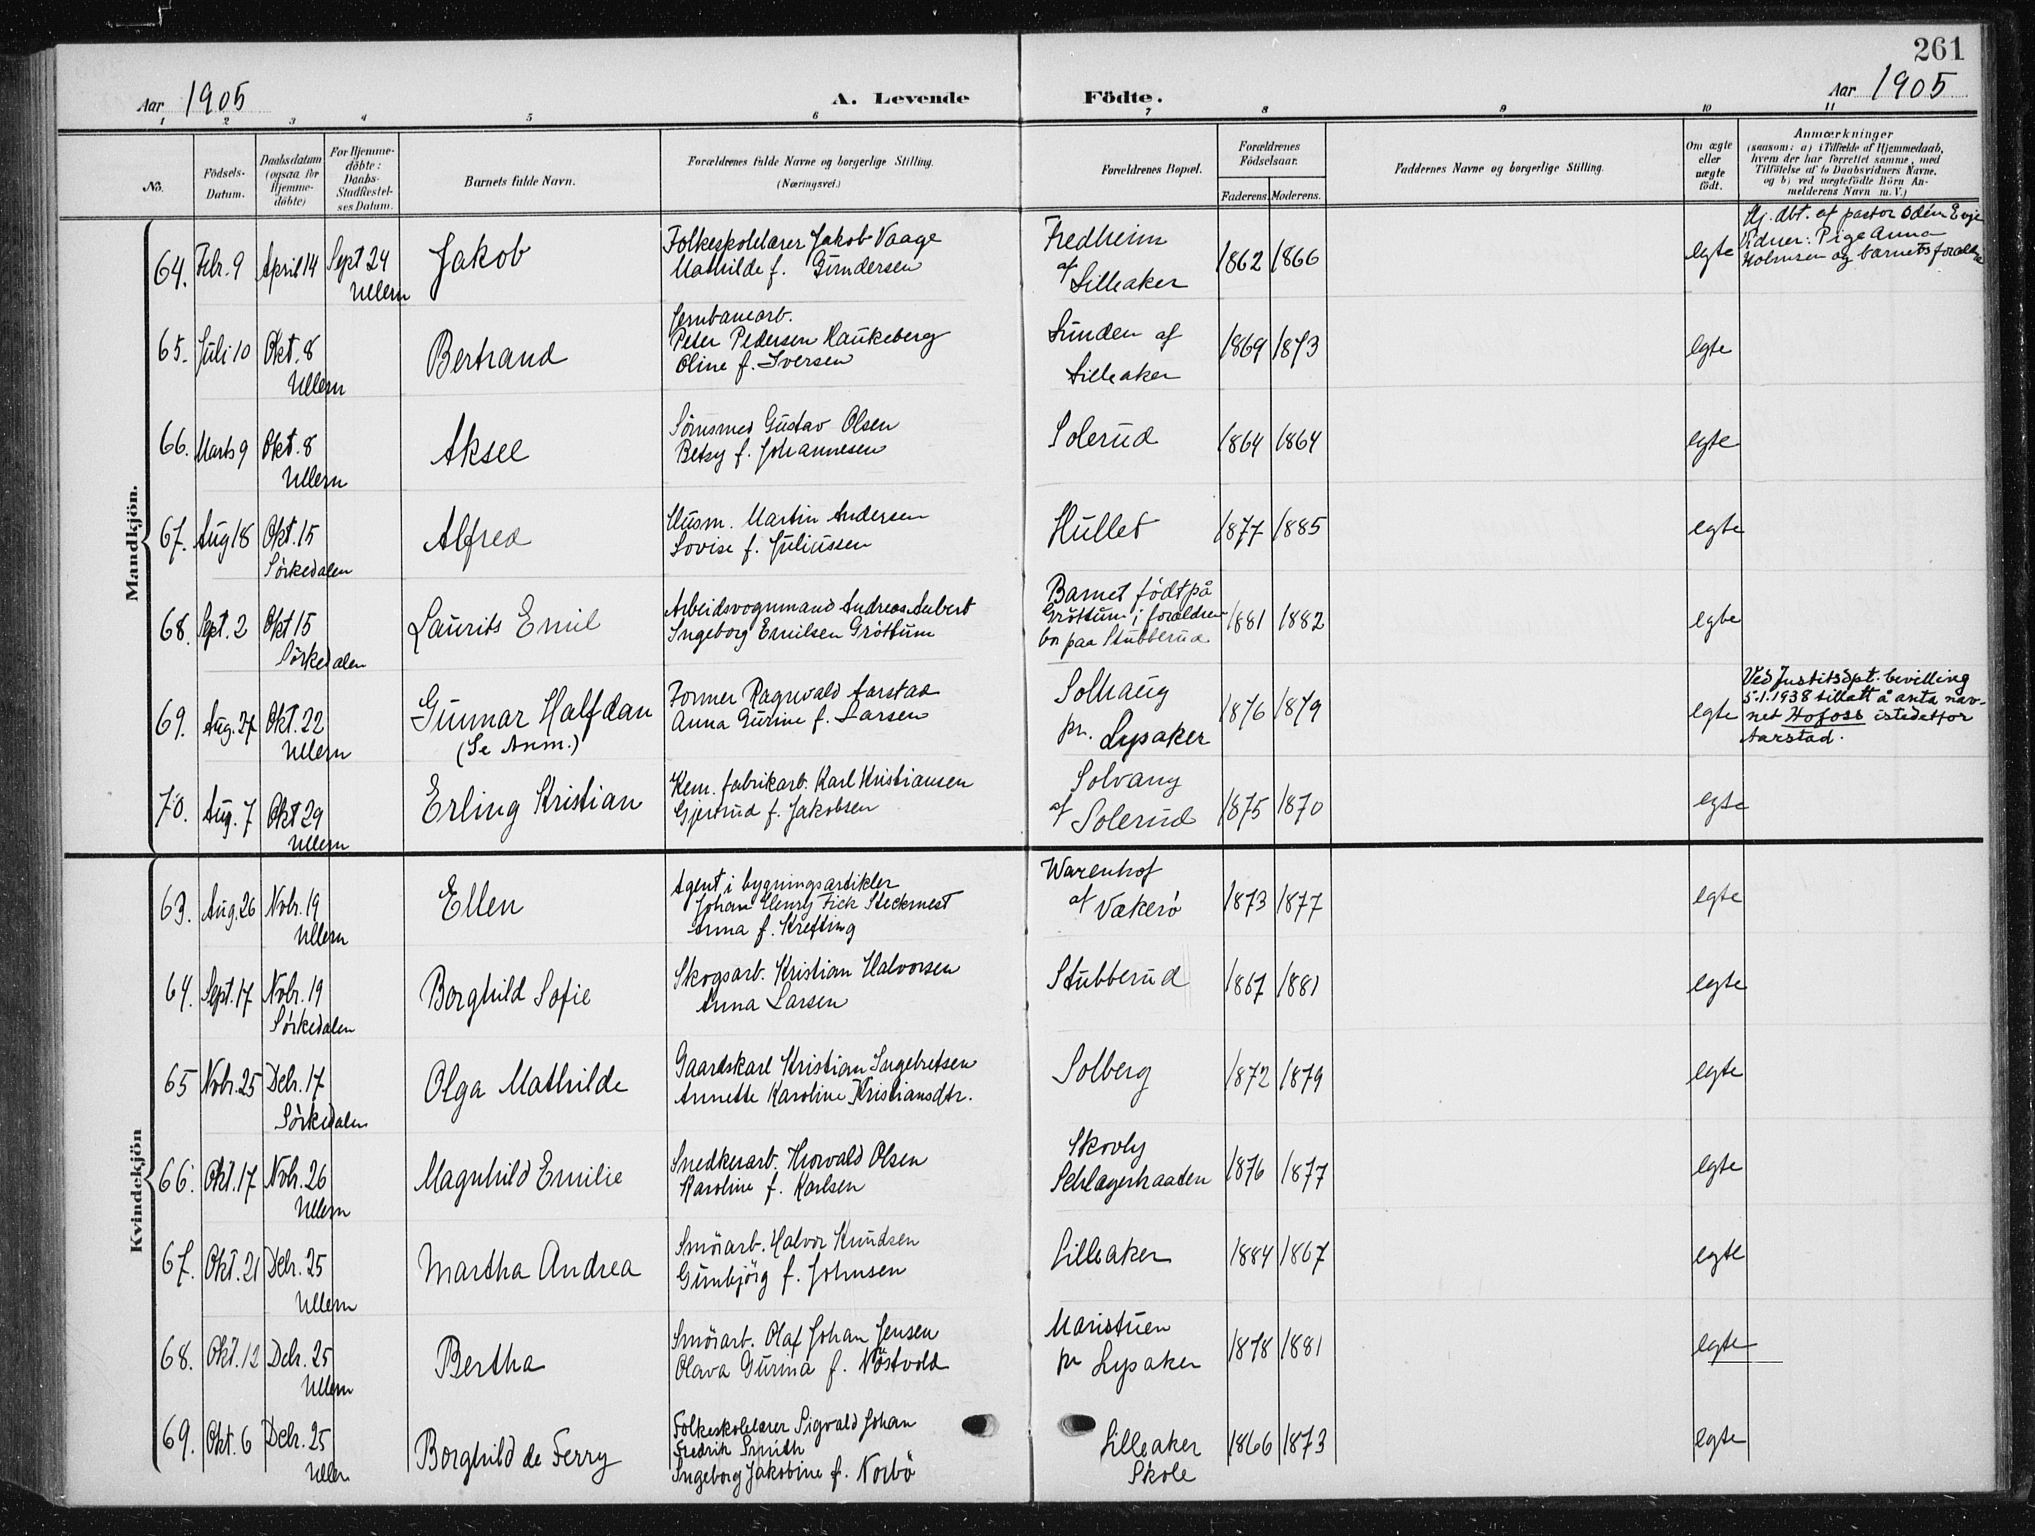 261
Aar 1905 A. Levende Födte. Aar 1905
1 2 3 4 5 6 7 8 9 10 11
No.
Födsels-
Datum.
Daabsdatum
(ogsaa for
Hjemme-
döbte)
For Hjemme-
döbte:
Daabs-
Stadfæstel-
ses Datum.
Barnets fulde Navn.
Forældrenes fulde Navne og borgerlige Stilling.
(Næringsvei.)
Forældrenes Bopæl.
Forældrenes
Födselsaar.
Faderens. Moderens.
Faddernes Navne og borgerlige Stilling.
Om ægte
eller
uægte
födt.
Anmærkninger
(saasom: a) i Tilfælde af Hjemmedaab,
hvem der har forrettet samme, med
Tilföielse af to Daabsvidners Navne.
og b) ved uægtefödte Börn An-
melderens Navn m. V.)
Mandkjön.
64. Febr. 9 April 14 Sept 24
Ullern
Jakob
Folkeskolelærer Jakob Vaage
Mathilde f. Gundersen
Fredheim
af Lilleaker
1862 1866 egte
Hj. dbt. af pastor Odén Evje
Vidner: Pige Anna
Holmsen og barnets forældre
65. Juli 10 Okt. 8
Ullern
Bertrand
Jernbanearb.
Peter Pedersen Haukeberg
Oline f. Iversen
Lunden af
Lilleaker
1869 1873 egte
66. Marts 9 Okt. 8
Ullern
Aksel
Gustav Olsen
Betsy f. Johannesen
Solerud
1864 1864 egte
67. Aug 18 Okt. 15
Sörkedalen
Alfred
Husm. Martin Andersen
Lovise f. Juliussen
Hullet
1877 1885 egte
68. Sept. 2 Okt 15
Sörkedalen
Laurits Emil
Arbeidsvognmand Andreas Aubert
Ingeborg Emilsen Gröttum
Barnet födt på
Gröttum; forældrene
bor paa Stubberud
1881 1882 egte
69. Aug. 27 Okt. 22
Ullern
Gunnar Halfdan
(Se Anm.)
Former Ragnvald Aarstad
Anna Gurine f. Larsen
Solhaug
pr. Lysaker
1876 1879 egte
Ved Justitsdpt. bevilling
5.1.1938 tillatt å anta nav-
net Hofoss istedetfor
Aarstad.
70. Aug. 7 Okt 29
Ullern
Erling Kristian
Kem. fabrikarb. Karl Kristiansen
Gjertrud f. Jakobsen
Solvang
af Solerud
1875 1870 egte
Kvindekjön
63. Aug. 26 Nobr. 19
Ullern
Ellen
Agent i bygningsartikler
Johan Henry Fick Steckmest
Anna f. Krefting
Warenhof
af Vækerö
1873 1877 egte
64. Sept. 17 Nobr. 19
Sörkedalen
Borghild Sofie
Skogsarb. Kristian Halvorsen
Anna Larsen
Stubberud
1867 1881 egte
65 Nobr. 25 Debr. 17
Sörkedalen
Olga Mathilde
Gaardskarl Kristian Ingebretsen
Annette Karoline Kristiansdtr.
Solberg
1872 1879 egte
66. Okt. 17 Nobr. 26
Ullern
Magnhild Emilie
Snedkerarb. Thorvald Olsen
Karoline f. Karlsen
Skovly
1876 1877 egte
67. Okt. 21 Debr. 25
Ullern
Martha Andrea
Smörarb. Halvor Knudsen
Gunbjörg f. Johnsen
Lilleaker
1884 1867 egte
68. Okt. 12 Debr. 25
Ullern
Bertha
Smörarb. Olaf Johan Jensen
Olava Gurina f. Nöstvold
Maristuen
pr Lysaker
1878 1881 egte
69. Okt. 6 Debr. 25
Ullern
Borghild de Ferry
Folkeskolelærer Sigvald Johan
Fredrik Smith
Ingeborg Jakobine f. Norbö
Lilleaker
Skole
1866 1873 egte